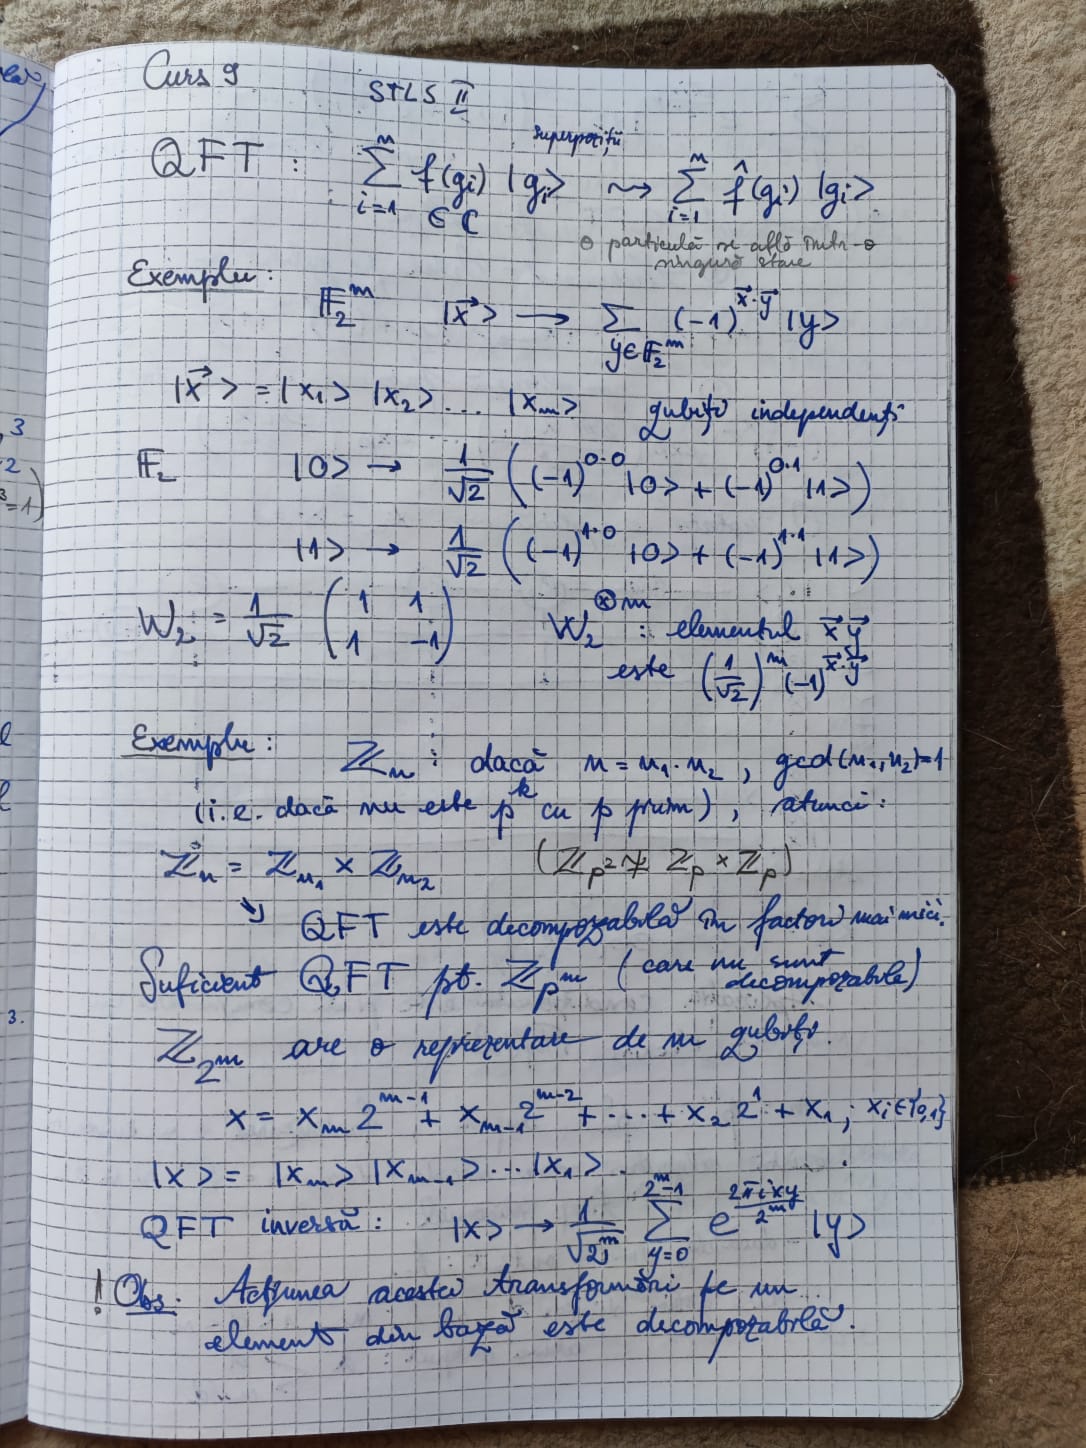 Curs 9
STLS II
superpoziții
QFT : ∑_{i=1}^{n} f(g_i) |g_i> ⤳ ∑_{i=1}^{n} f̂(g_i) |g_i>
∈ ℂ
o particulă se află într-o
singură stare
Exemplu:
𝔽_2^m |x⃗> → ∑_{y∈𝔽_2^m} (-1)^{x⃗·y⃗} |y>
|x⃗> = |x_1> |x_2> ... |x_m> qubiți independenți
𝔽_2 |0> → 1/√2 ((-1)^{0·0} |0> + (-1)^{0·1} |1>)
|1> → 1/√2 ((-1)^{1·0} |0> + (-1)^{1·1} |1>)
W_2 = 1/√2 (1 1 / 1 -1) W_2^{⊗m} : elementul x⃗ y⃗
este (1/√2)^m (-1)^{x⃗·y⃗}
Exemplu: ℤ_n : dacă n = n_1 · n_2 , gcd(n_1, n_2)=1
(i.e. dacă nu este p^k cu p prim), atunci:
ℤ_n = ℤ_{n_1} × ℤ_{n_2} (ℤ_{p^2} ≠ ℤ_p × ℤ_p)
↘ QFT este decompozabilă în factori mai mici.
Suficient QFT pt. ℤ_{p^m} (care nu sunt
decompozabile)
ℤ_{2^m} are o reprezentare de m qubiți.
x = x_m 2^{m-1} + x_{m-1} 2^{m-2} + ... + x_2 2^1 + x_1 ; x_i ∈ {0,1}
|x> = |x_m> |x_{m-1}> ... |x_1> .
QFT inversă : |x> → 1/√(2^m) ∑_{y=0}^{2^m-1} e^{2πixy/2^m} |y>
! Obs. Acțiunea acestei transformări pe un
element din bază este decompozabilă.